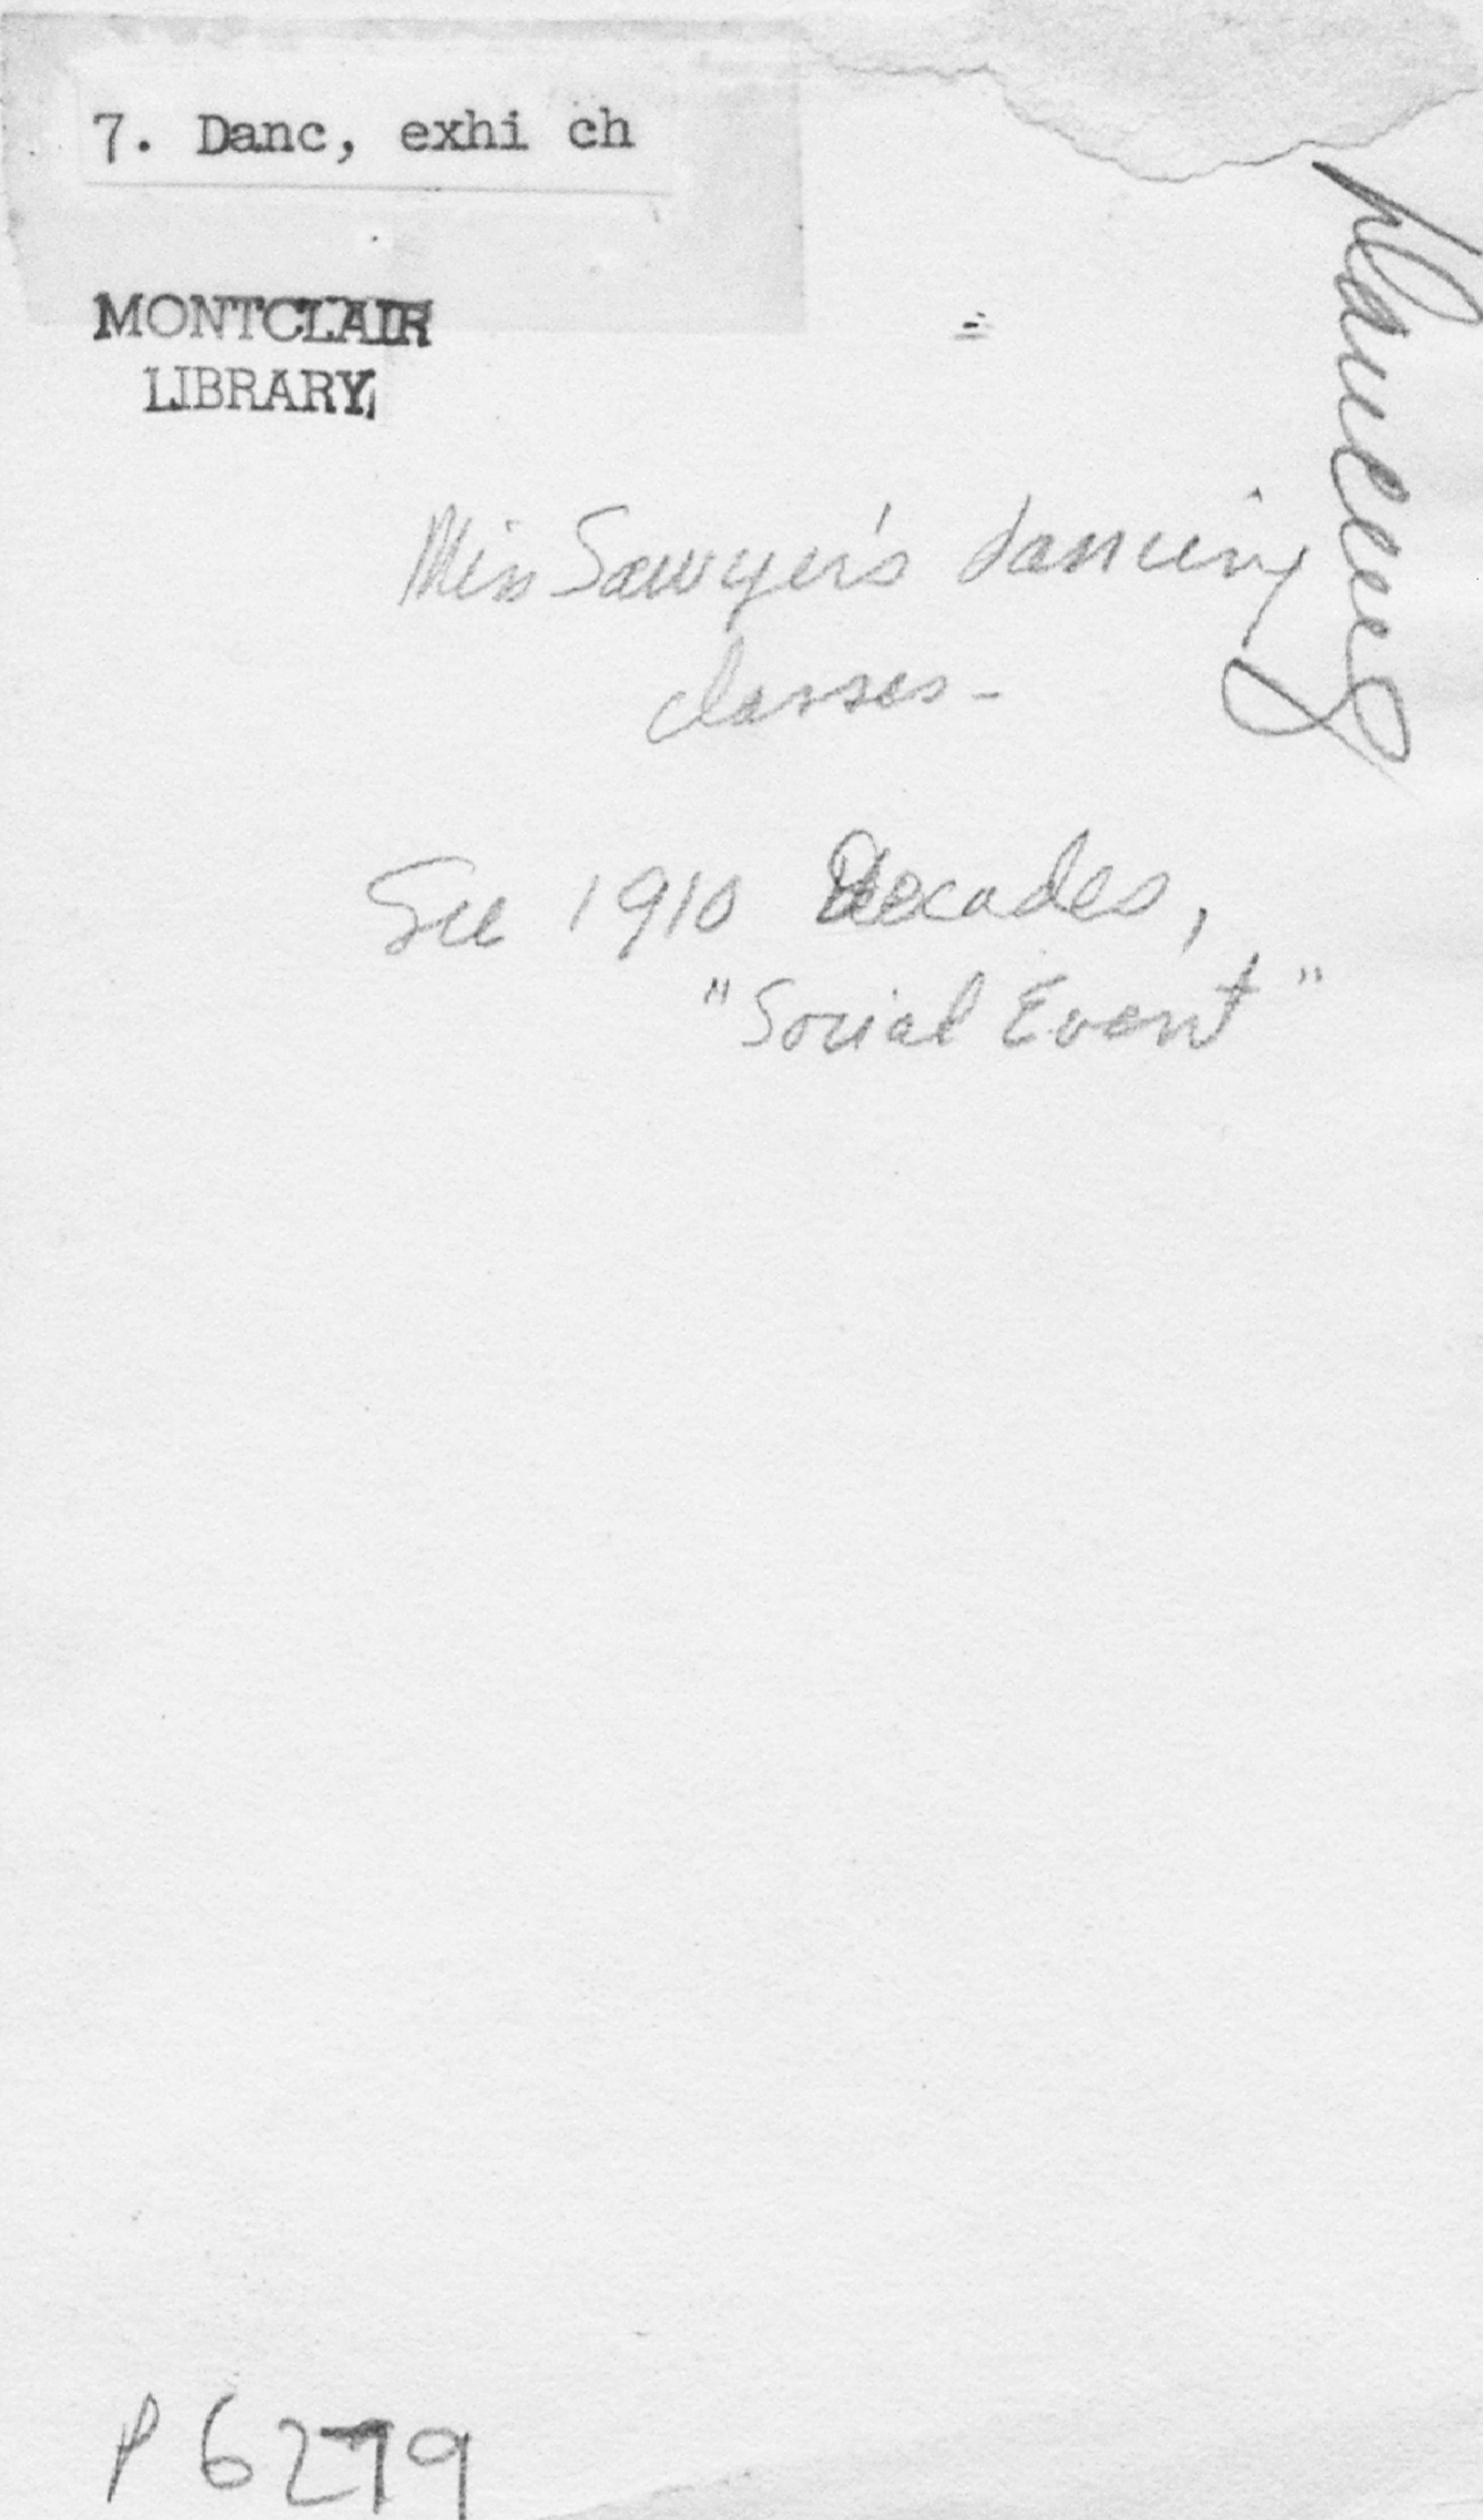 7. Danc, exhi ch
MONTCLAIR
LIBRARY
Dancing
Miss Sawyer's dancing
classes -
See 1910 Decades,
"Social Event"
P 6279